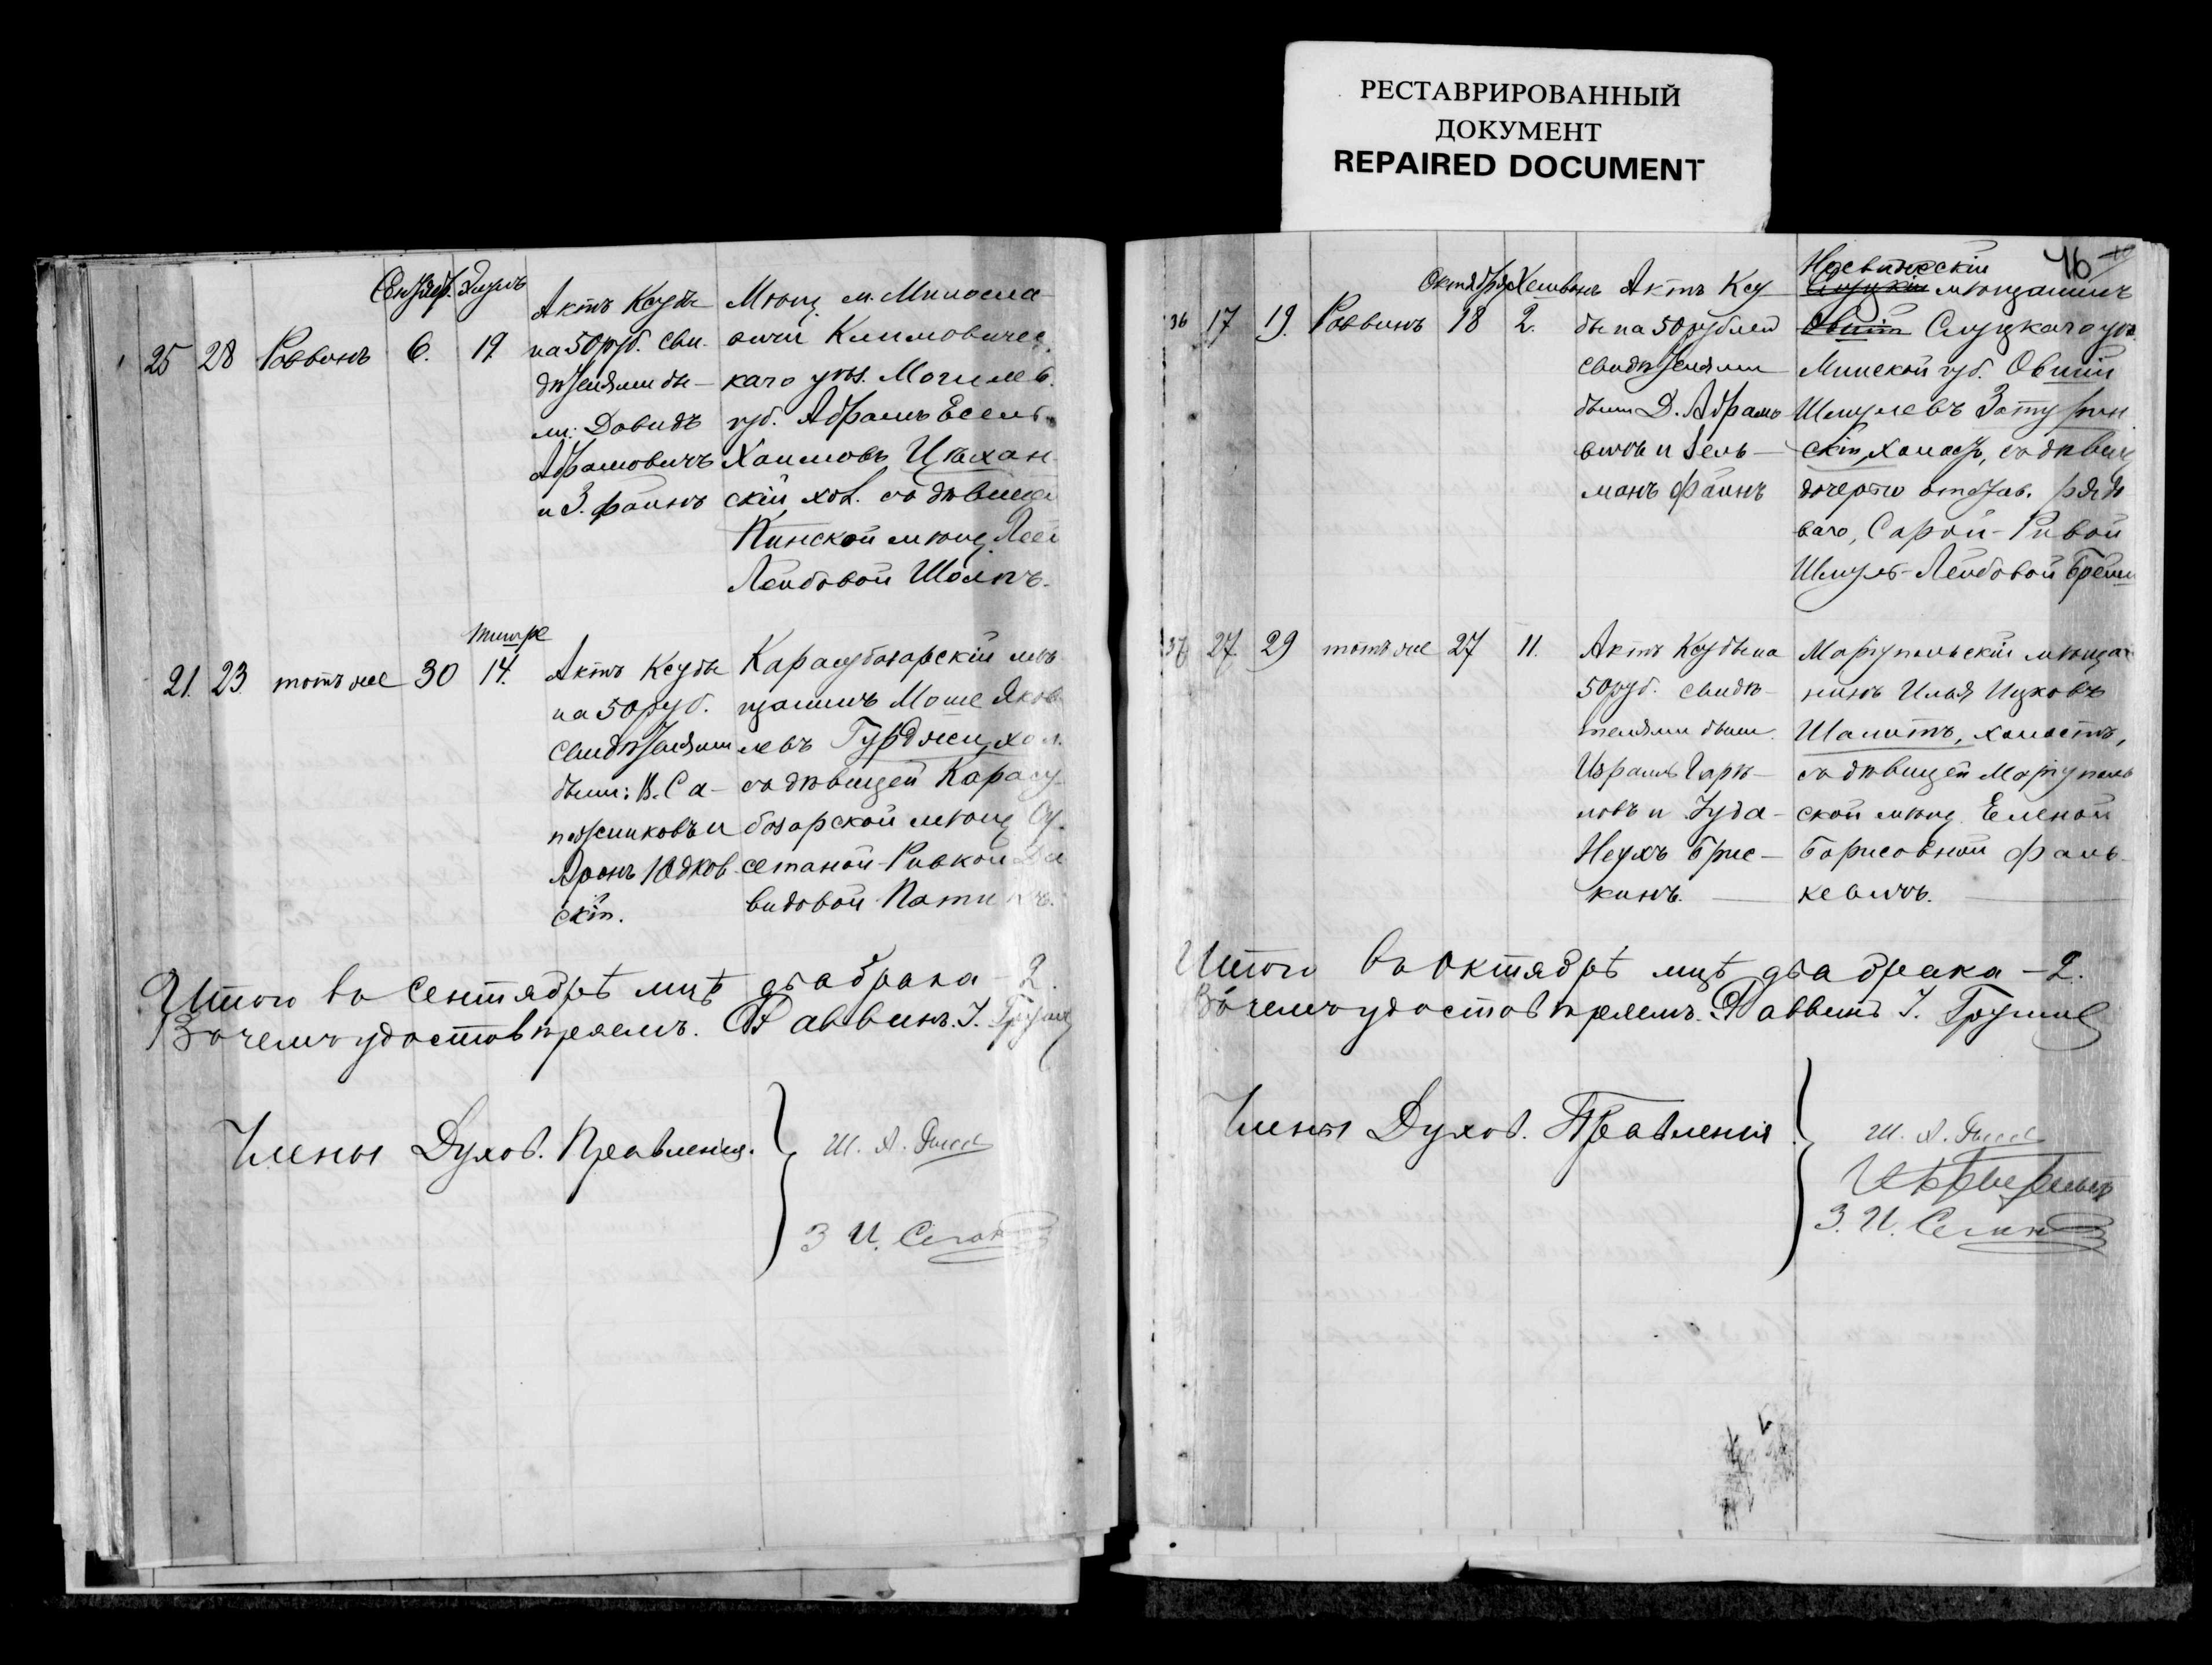 РЕСТАВРИРОВАННЫЙ
ДОКУМЕНТ
REPAIRED DOCUMENT
Сентяб. Элулъ
25 28 Раввинъ 6. 19
Актъ Ксубы
на 50 руб. сви-
дѣтелями бы-
ли: Давидъ
Абрамовичъ
и З. Файнъ
Мѣщ. м. Милосла-
вичи Климовичес-
каго уѣз. Могилев.
губ. Абрамъ Есель
Хаимовъ Цыхан-
скій, хол. съ дѣвицей
Пинской мѣщ. Леей
Лейбовой Шоломъ.
Тишре
21. 23. тотъ же 30 14.
Актъ Ксубы
на 50 руб.
свидѣтелями
были: В. Са-
пожниковъ и
Аронъ Юдков-
скій.
Карасубазарскій мѣ-
щанинъ Моше Яков-
левъ Гурджи, хол.
съ дѣвицей Карасу-
базарской мѣщ. Су-
станой-Ривкой Да-
видовой
Итого въ Сентябрѣ мцѣ два брака - 2.
В чемъ удостовѣряемъ. Раввинъ І.
Члены Духов. Правленія.
Ш. А.
З. И.
46
Октября Хешванъ
36 17 19. Раввинъ 18 2.
Актъ Ксу-
бы на 50 рублей
свидѣтелями
были Д. Абрамо-
вичъ и Зель-
манъ Файнъ
Несвижскій
Слуцкій мѣщанинъ
Овшій Слуцкаго уѣз.
Минской губ. Овшій
Шмулевъ Затурян-
скій, холостъ, съ дѣвиц.
дочерью отстав. рядо-
ваго, Сарой-Ривой
Шмуль-Лейбовой
37 27 29 тотъ же 27 11.
Актъ Ксубы на
50 руб. свидѣ-
телями были
Израиль Гари-
новъ и Іуда-
Неухъ Брис-
кинъ.
Маріупольскій мѣща-
нинъ Илья Ицковъ
Шалитъ, холостъ,
съ дѣвицей Маріуполь-
ской мѣщ. Еленой
Борисовной Фаль-
кевичъ.
Итого въ Октябрѣ мцѣ два брака - 2.
В чемъ удостовѣряемъ. Раввинъ І.
Члены Духов. Правленія
Ш. А.
З. И.